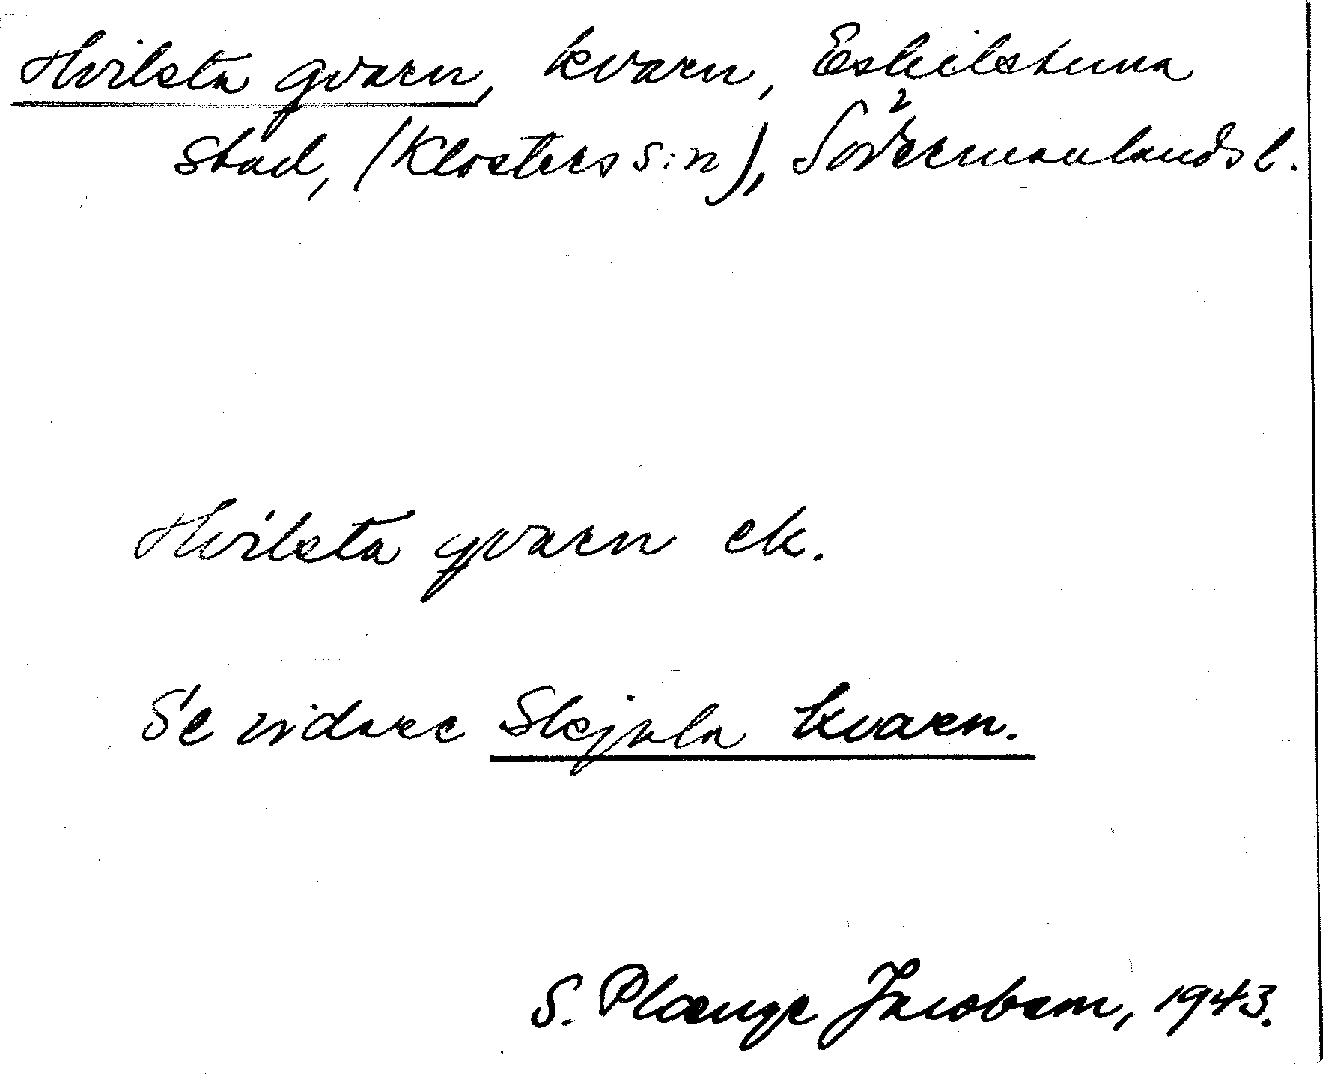 Hvilsta qvarn, kvarn, Eskilstuna
stad, (Klosters s:n), Södermanlands l.
Hvilsta qvarn ek.
Se vidare Skjula kvarn.
S. Plænge Jacobson, 1943.